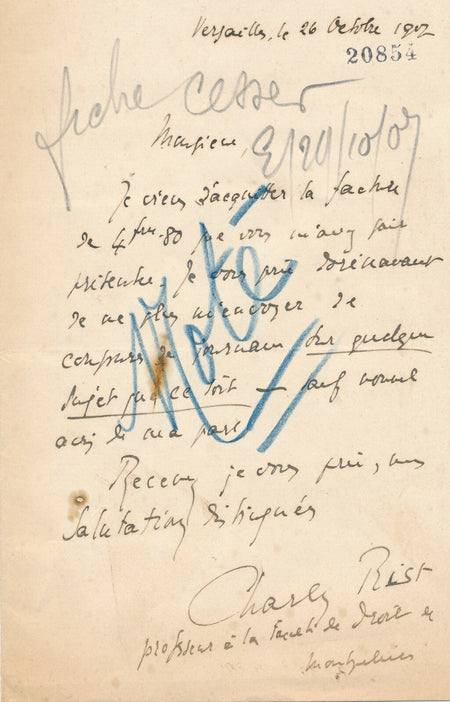 Versailles, le 26 Octobre 1907
20854
fiche cesser
Monsieur,
Je viens d'acquitter la facture
de 4frs.80 que vous m'avez fait
présenter. Je vous prie dorénavant
de ne plus m'envoyer de
coupures de journaux sur quelque
sujet que ce soit — sauf nouvel
avis de ma part.
Noté
Recevez, je vous prie, mes
salutations distinguées
Charles Rist
professeur à la faculté de Droit de
Montpellier